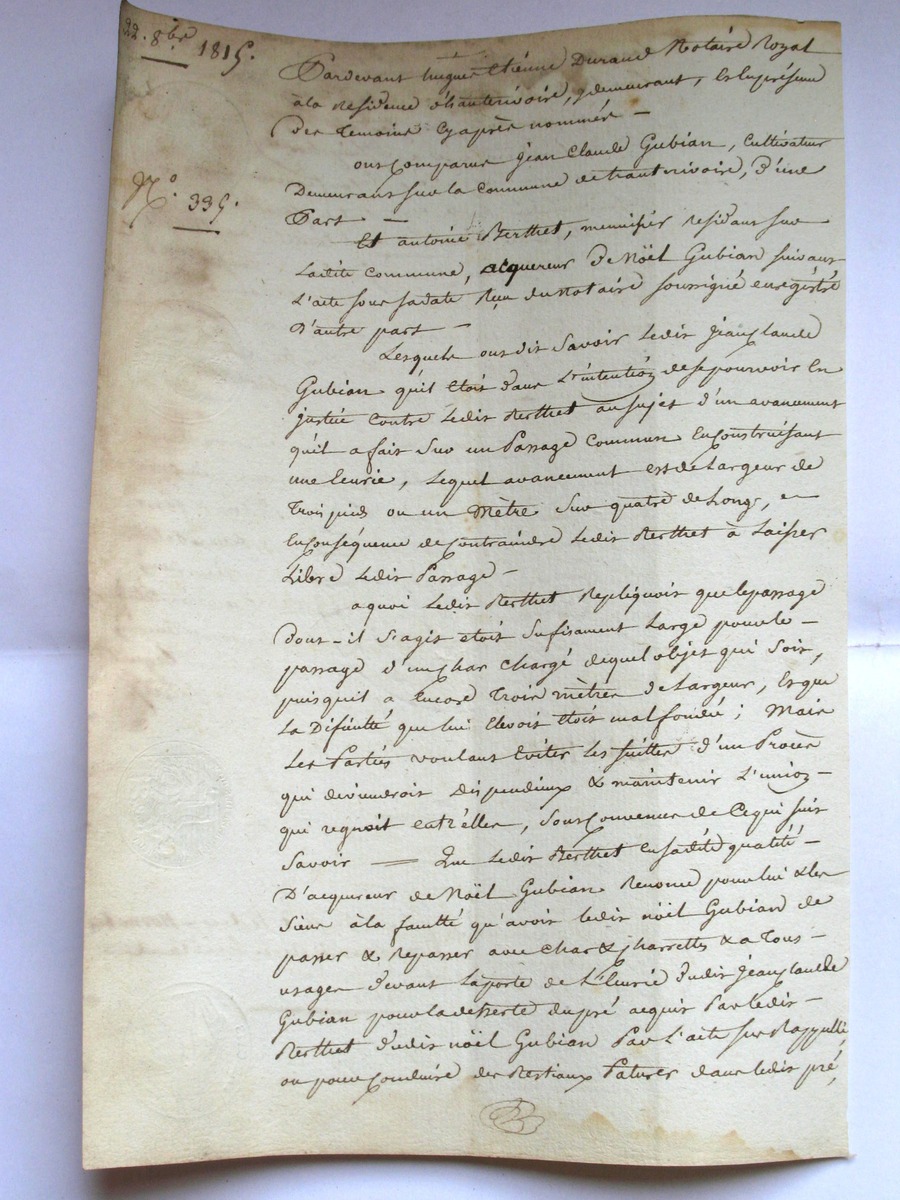 22. 8bre 1815.
N.° 335.
Pardevant hugues Etiénne Durand Notaire Royal
à la Residence d'hauterivoire, y demeurant, Et En présence
Des Temoins Cy après nommés —
ont Comparus Jean Claude Gubian, Cultivateur
Demeurant sur la Commune de hauterivoire, D'une
Part —
Et antoine Berthet, menuisier residant sur
Ladite Commune, acquereur De Nöel Gubian suivant
L'acte sous sa date Reçu du Notaire soussigné enregistré
D'autre part —
Lesquels ont dit Savoir Ledit Jean Claude
Gubian qu'il Etoit dans L'intention de se pourvoir En
justice Contre Ledit Berthet au sujet d'un avancement
qu'il a fait Sur un Passage Commun En Construisant
une Ecurie, Lequel avancement est de Largeur de
Trois pieds ou un Mètre Sur quatre de Long, et
En Conséquence de Contraindre Ledit Berthet à Laisser
Libre Ledit Passage —
a quoi Ledit Berthet Repliquoit que le passage
Dont-il S'agit etoit Sufisament Large pour le —
passage d'un char chargé de quel objet qui Soit,
puisquil a Encore Trois mètres de Largeur, Et que
La Dificulté que lui Elevoit Etoit mal fondée; Mais
Les Parties voulant Eviter Les suittes d'un Procès
qui deviendroit Dispendieux & maintenir L'union —
qui regnoit entr'elles, Sont Convenus de Ce qui suit
Savoir — Que Ledit Berthet en sadite qualité —
D'acquereur de Nöel Gubian Renonce pour lui & les
Siens à la faculté qu'avoit ledit nöel Gubian de
passer & Repasser avec Char & Charrettes & a Tous —
usages Devant La porte de L'Ecurie dudit Jean Claude
Gubian pour la desserte du pré acquis Par ledit —
Berthet dudit nöel Gubian Par L'acte sus Rappellé
ou pour Conduire des Bestiaux Paturer dans ledit pré,